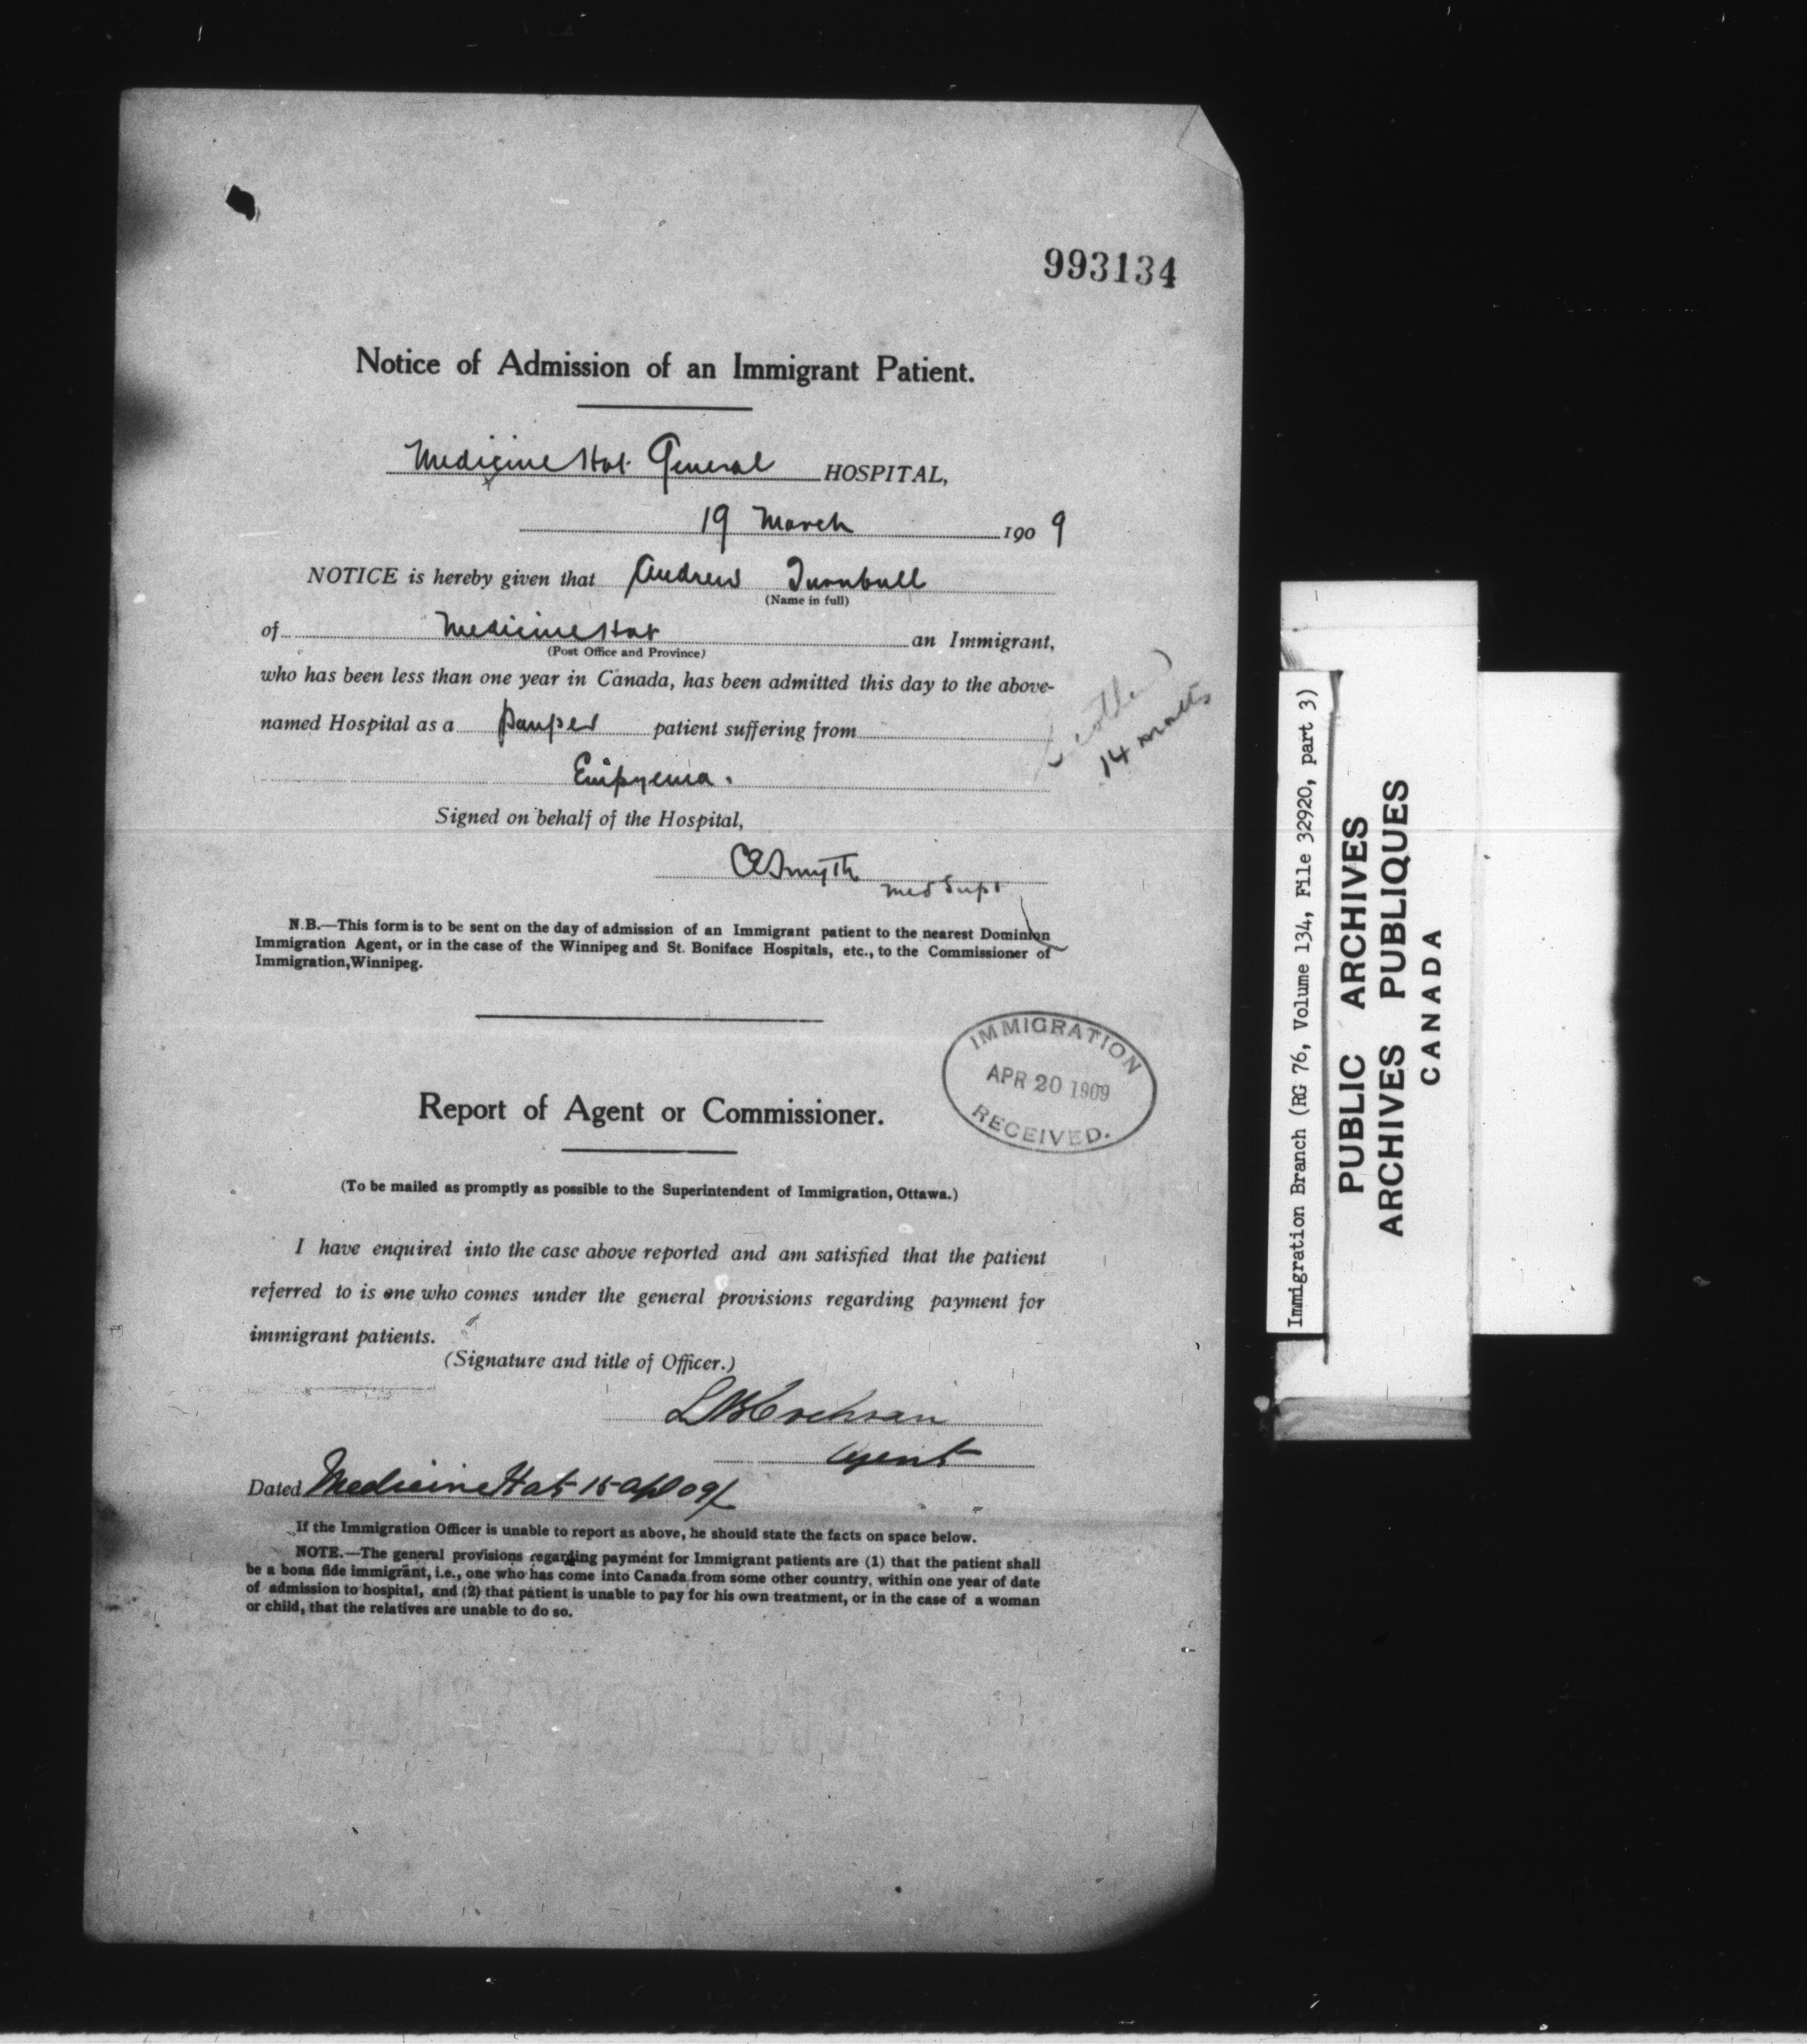 993134
Notice of Admission of an Immigrant Patient.
Medicine Hat General HOSPITAL,
19 March 1909
NOTICE is hereby given that Andrew Turnbull
(Name in full)
of Medicine Hat an Immigrant,
(Post Office and Province)
who has been less than one year in Canada, has been admitted this day to the above-
named Hospital as a pauper patient suffering from
Empyema.
14
Signed on behalf of the Hospital,
C Smyth
Med Supt
N.B.—This form is to be sent on the day of admission of an Immigrant patient to the nearest Dominion
Immigration Agent, or in the case of the Winnipeg and St. Boniface Hospitals, etc., to the Commissioner of
Immigration, Winnipeg.
IMMIGRATION
APR 20 1909
RECEIVED.
Report of Agent or Commissioner.
(To be mailed as promptly as possible to the Superintendent of Immigration, Ottawa.)
I have enquired into the case above reported and am satisfied that the patient
referred to is one who comes under the general provisions regarding payment for
immigrant patients.
(Signature and title of Officer.)
Cochran
Agent
Dated Medicine Hat 15 Apl 09
If the Immigration Officer is unable to report as above, he should state the facts on space below.
NOTE.—The general provisions regarding payment for Immigrant patients are (1) that the patient shall
be a bona fide immigrant, i.e., one who has come into Canada from some other country, within one year of date
of admission to hospital, and (2) that patient is unable to pay for his own treatment, or in the case of a woman
or child, that the relatives are unable to do so.
Immigration Branch (RG 76, Volume 134, File 32920, part 3)
PUBLIC ARCHIVES
ARCHIVES PUBLIQUES
CANADA